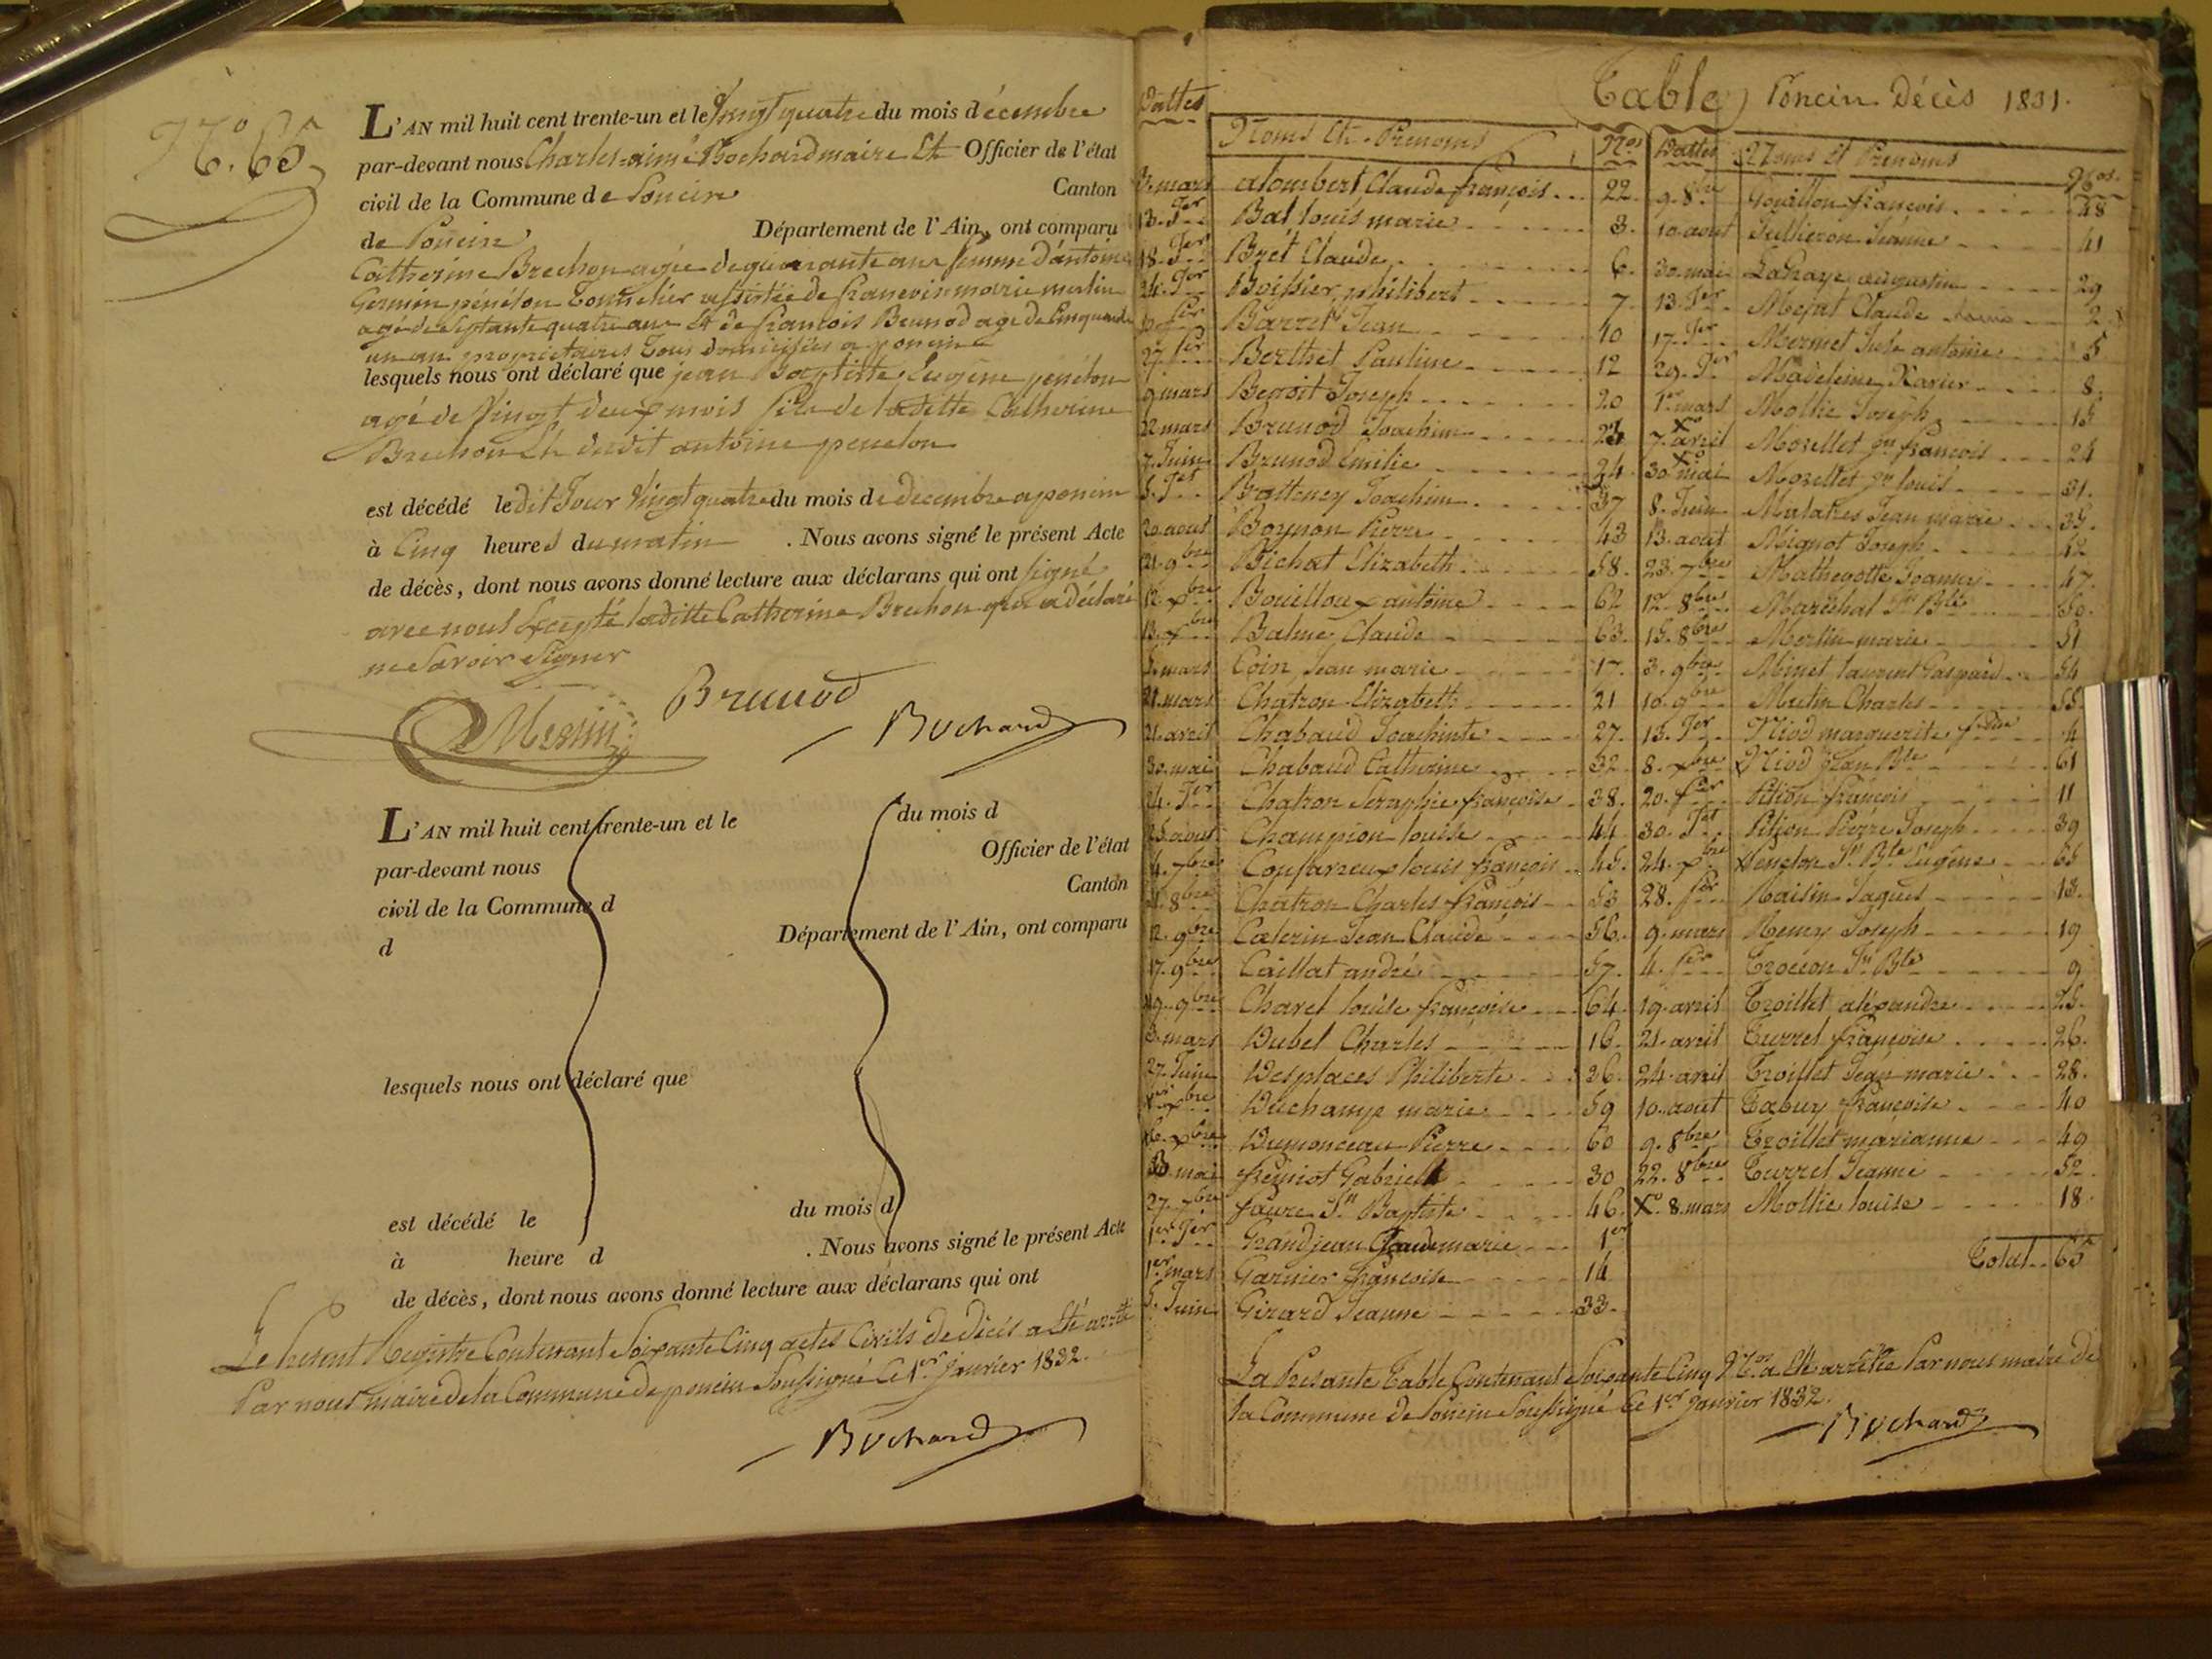 N.° 65
L'AN mil huit cent trente-un et le Vingt quatre du mois décembre
par-devant nous Charles-aimé Bochard maire Et Officier de l'état
civil de la Commune de Poncin Canton
de Poncin Département de l'Ain, ont comparu
Catherine Brechon agée de quarante ans femme d'antoine
penelon tonnelier assistée de francois marie merlin
agé de septante quatre ans Et de francois Brunod agé de Cinquante
un an propriétaires tous domiciliés a poncin
lesquels nous ont déclaré que jean Baptiste Eugène penelon
agé de Vingt deux mois fils de laditte Catherine
Brechon Et dudit antoine penelon
est décédé ledit Jour Vingt quatre du mois de decembre a poncin
à Cinq heures du matin . Nous avons signé le présent Acte
de décès, dont nous avons donné lecture aux déclarans qui ont signé
avec nous Excepté laditte Catherine Brechon qui a déclaré
ne Savoir Signer
Merlin Brunod
Bochard
L'AN mil huit cent trente-un et le du mois d
par-devant nous Officier de l'état
civil de la Commune d Canton
d Département de l'Ain, ont comparu
lesquels nous ont déclaré que
est décédé le du mois d
à heure d . Nous avons signé le présent Acte
de décès, dont nous avons donné lecture aux déclarans qui ont
Le présent Registre Contenant Soixante Cinq actes Civils de décès a Eté arrêté
Par nous maire de la Commune de poncin Soussigné Ce 1er Janvier 1832.
Bochard
Table Poncin Décès 1831.
Dattes Noms Et Prenoms Nos
mars alombert Claude françois 22
13. Jer Bal louis marie 3.
18. Jer Bret Claude 6.
24. Jer Boissier philibert 7
fer Barret Jean 10
27. fer Berthet Pauline 12
9 mars Benoit Joseph 20
22 mars Brunod Joachim 23
7. Juin Brunod Emilie 34
5. Jet Battency Joachim 37
20 aout Boynon Pierre 43
21. 9bre Bichat Elizabeth 58.
12. xbre Bouilloux antoine 62
13. xbre Balme Claude 63.
5. mars Coin Jean marie 17.
21. mars Chatron Elizabeth 21
21. avril Chabaud Joachinte 27.
30. mai Chabaud Catherine 32
24. Jet Chatron Seraphie françoise 38.
25 aout Champion louise 44
4. 7bre louis françois 45.
8bre Chatron Charles françois 53
12. 9bre Caterin Jean Claude 56.
17. 9bre Caillat andré 57.
Charel louise françoise 64.
3. mars Dubel Charles 16.
27. Juin Desplaces Philiberte 36.
1er xbre Duchamp marie 59
6. xbre Dumonceau Pierre 60
mai Gabriel 30
27. 7bre faure Jn Baptiste 46.
1er Jer Grandjean Claude marie 1er
1er mars Garnier françoise 14
5. Juin Girard Jeanne 33.
Dattes Noms Et Prenoms Nos.
9. 8bre Gouillon françois 48
10. aout Jullieron Jeanne 41
30. mai LaHaye augustin 29
13. Jer Claude 2
17. Jer Mermet antoine 5
29. Jer Madeleine Xavier 8.
1er mars Mollie Joseph 15
7. avril Morellet jn françois 24
30 mai Morellet jn louis 31.
8. Juin Jean marie 35.
13. aout Mignot Joseph 42
23. 7bre Mathevotte Jeanne 47.
12. 8bre Maréchal Jn Bte 50.
15. 8bre Merlin marie 51
3. 9bre Minet laurent Gaspard 54
10. 9bre Mutin Charles 55
13. Jer Niod marguerite 4
8. xbre Niod Jean Bte 61
20. fer Pition françois 11
30. Jet Pition Pierre Joseph 39
24. xbre Penelon Jn Bte Eugène 65
28. fer Raisin Jaques 13.
9. mars Remy Joseph 19
4. fer Trocéon Jn Bte 9
19. avril Troillet aléxandre 25.
21. avril Turrel françoise 26.
24. avril Troillet Jean marie 28.
10. aout Tabuy françoise 40
9. 8bre Troillet marianne 49
22. 8bre Turrel Jeanne 52
X° 8. mars Mollie louise 18
Total 65
La Présante Table Contenant Soixante Cinq Nos a Eté arrêtée Par nous maire de
la Commune de Poncin Soussigné Ce 1er Janvier 1832.
Bochard